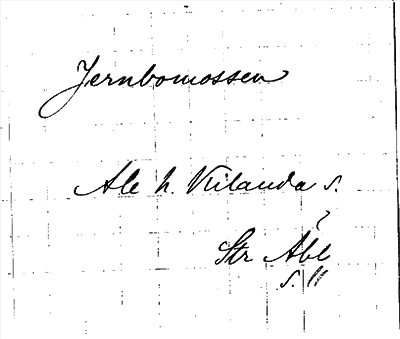 Jernbomossen
Ale h. Kilanda s.
?
Str Åbl
s. 11